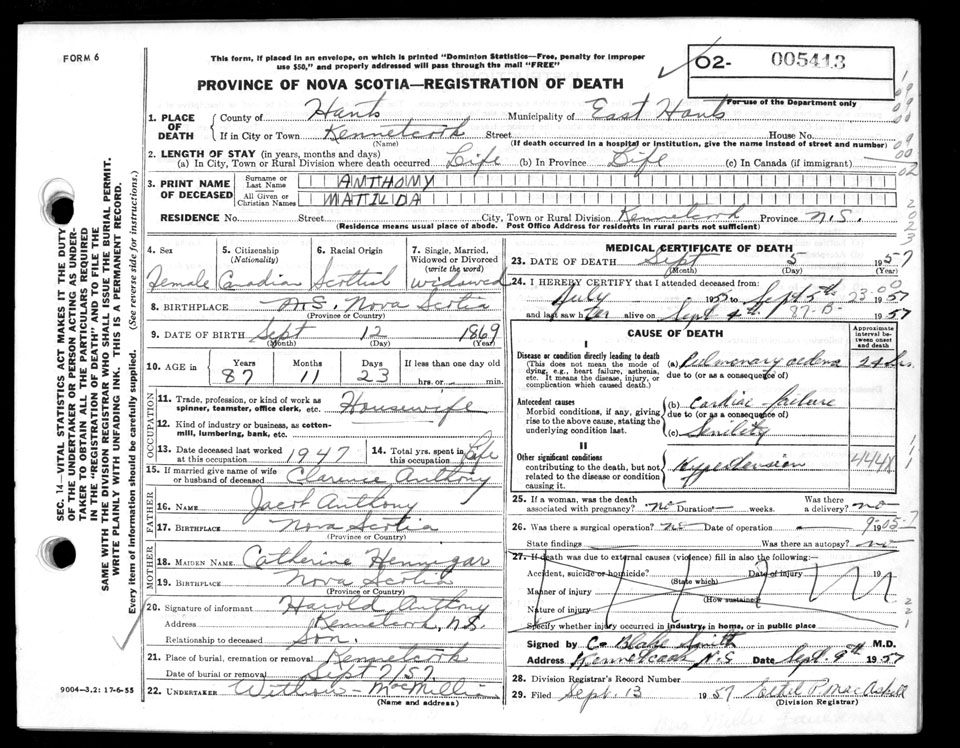 FORM 6
This form, if placed in an envelope, on which is printed "Dominion Statistics—Free, penalty for improper
use $50," and properly addressed will pass through the mail "FREE"
PROVINCE OF NOVA SCOTIA—REGISTRATION OF DEATH
02- 005413
For use of the Department only
1. PLACE OF DEATH
County of Hants Municipality of East Hants
If in City or Town Kennetcook Street House No.
(Name) (If death occurred in a hospital or institution, give the name instead of street and number)
2. LENGTH OF STAY (in years, months and days)
(a) In City, Town or Rural Division where death occurred Life (b) In Province Life (c) In Canada (if immigrant)
3. PRINT NAME OF DECEASED
Surname or Last Name ANTHONY
All Given or Christian Names MATILDA
RESIDENCE No. Street City, Town or Rural Division Kennetcook Province N.S.
(Residence means usual place of abode. Post Office Address for residents in rural parts not sufficient)
4. Sex Female
5. Citizenship (Nationality) Canadian
6. Racial Origin Scottish
7. Single, Married, Widowed or Divorced (write the word) widowed
8. BIRTHPLACE N.S. Nova Scotia
(Province or Country)
9. DATE OF BIRTH Sept 12 1869
(Month) (Day) (Year)
10. AGE in Years 87 Months 11 Days 23 If less than one day old hrs. or min.
OCCUPATION
11. Trade, profession, or kind of work as spinner, teamster, office clerk, etc. Housewife
12. Kind of industry or business, as cotton-mill, lumbering, bank, etc.
13. Date deceased last worked at this occupation 1947
14. Total yrs. spent in this occupation Life
15. If married give name of wife or husband of deceased Clarence Anthony
FATHER
16. NAME Jacob Anthony
17. BIRTHPLACE Nova Scotia
(Province or Country)
MOTHER
18. MAIDEN NAME Catherine Hennigar
19. BIRTHPLACE Nova Scotia
(Province or Country)
20. Signature of informant Harold Anthony
Address Kennetcook, N.S.
Relationship to deceased Son.
21. Place of burial, cremation or removal Kennetcook
Date of burial or removal Sept 7/57.
22. UNDERTAKER
(Name and address)
9004—3.2: 17-6-55
SEC. 14—VITAL STATISTICS ACT MAKES IT THE DUTY
OF THE UNDERTAKER OR PERSON ACTING AS UNDER-
TAKER TO OBTAIN ALL THE PARTICULARS REQUIRED
IN THE "REGISTRATION OF DEATH" AND TO FILE THE
SAME WITH THE DIVISION REGISTRAR WHO SHALL ISSUE THE BURIAL PERMIT.
WRITE PLAINLY WITH UNFADING INK. THIS IS A PERMANENT RECORD.
Every item of information should be carefully supplied. (See reverse side for instructions.)
MEDICAL CERTIFICATE OF DEATH
23. DATE OF DEATH Sept 5 1957
(Month) (Day) (Year)
24. I HEREBY CERTIFY that I attended deceased from:
July 1957 to Sept 5th 1957
and last saw her alive on Sept 4th 1957
CAUSE OF DEATH
Approximate interval between onset and death
I
Disease or condition directly leading to death
(This does not mean the mode of dying, e.g., heart failure, asthenia, etc. It means the disease, injury, or complication which caused death.)
(a) Pulmonary oedema 24 hrs.
due to (or as a consequence of)
Antecedent causes
Morbid conditions, if any, giving rise to the above cause, stating the underlying condition last.
(b) Cardiac failure
due to (or as a consequence of)
(c) Senility
II
Other significant conditions
contributing to the death, but not related to the disease or condition causing it.
Hypertension 444X
25. If a woman, was the death associated with pregnancy? no Duration weeks. Was there a delivery? no
26. Was there a surgical operation? no Date of operation
State findings Was there an autopsy? no
27. If death was due to external causes (violence) fill in also the following:—
Accident, suicide or homicide? Date of injury 19
(State which)
Manner of injury
(How sustained)
Nature of injury
Specify whether injury occurred in industry, in home, or in public place
Signed by C. Blake Smith M.D.
Address Kennetcook N.S Date Sept. 9th 1957
28. Division Registrar's Record Number
29. Filed Sept. 13 1957
(Division Registrar)